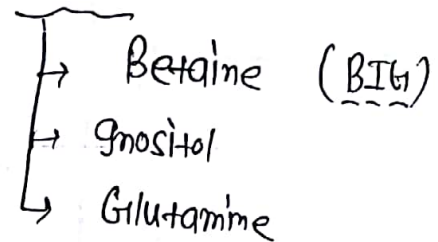 Betaine (BIG)
Inositol
Glutamine